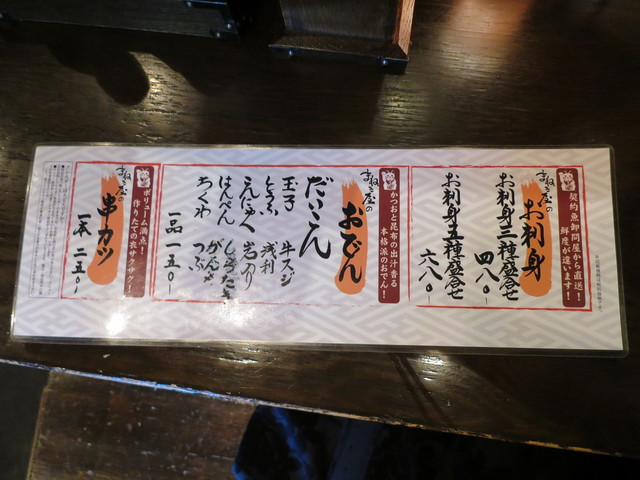 契約魚卸問屋から直送!
鮮度が違います!
お刺身
お刺身三種盛合せ
四八〇
お刺身五種盛合せ
六八〇
かつおと昆布の出汁香る
本格派のおでん!
おでん
だいこん
玉子
牛スジ
とうふ
浅利
こんにゃく
はんぺん
しらたき
ちくわ
がんも
つぶ
一品 一五〇
ボリューム満点!
作りたての衣サクサク!
串カツ
一本 二五〇